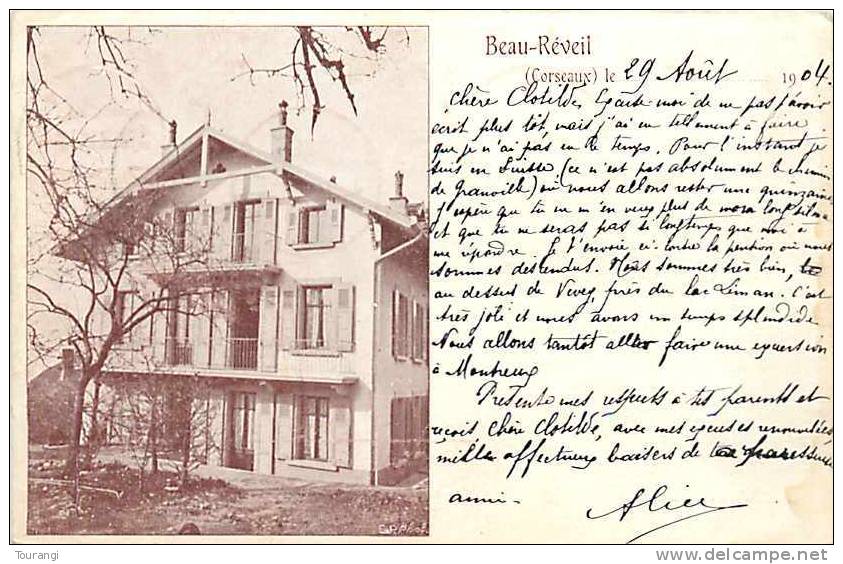 Beau-Réveil
(Corseaux) le 29 Août 1904.
Chère Clotilde, Excuse-moi de ne pas t'avoir
écrit plus tôt, mais j'ai eu tellement à faire
que je n'ai pas eu le temps. Pour l'instant je
suis en Suisse (ce n'est pas absolument le chemin
de Granville) où nous allons rester une quinzaine
J'espère que tu ne m'en veux plus de mon long silence
et que tu ne seras pas si longtemps que moi à
me répondre. Je t'envoie ci-contre la pension où nous
sommes descendus. Nous sommes très bien,
au dessus de Vevey, près du lac Léman. C'est
très joli et nous avons un temps splendide
Nous allons tantôt aller faire une excursion
à Montreux
Présente mes respects à tes parents et
reçois, Chère Clotilde, avec mes excuses renouvelées,
mille affectueux baisers de ta paresseuse
amie.
Alice
Tourangi
www.delcampe.net